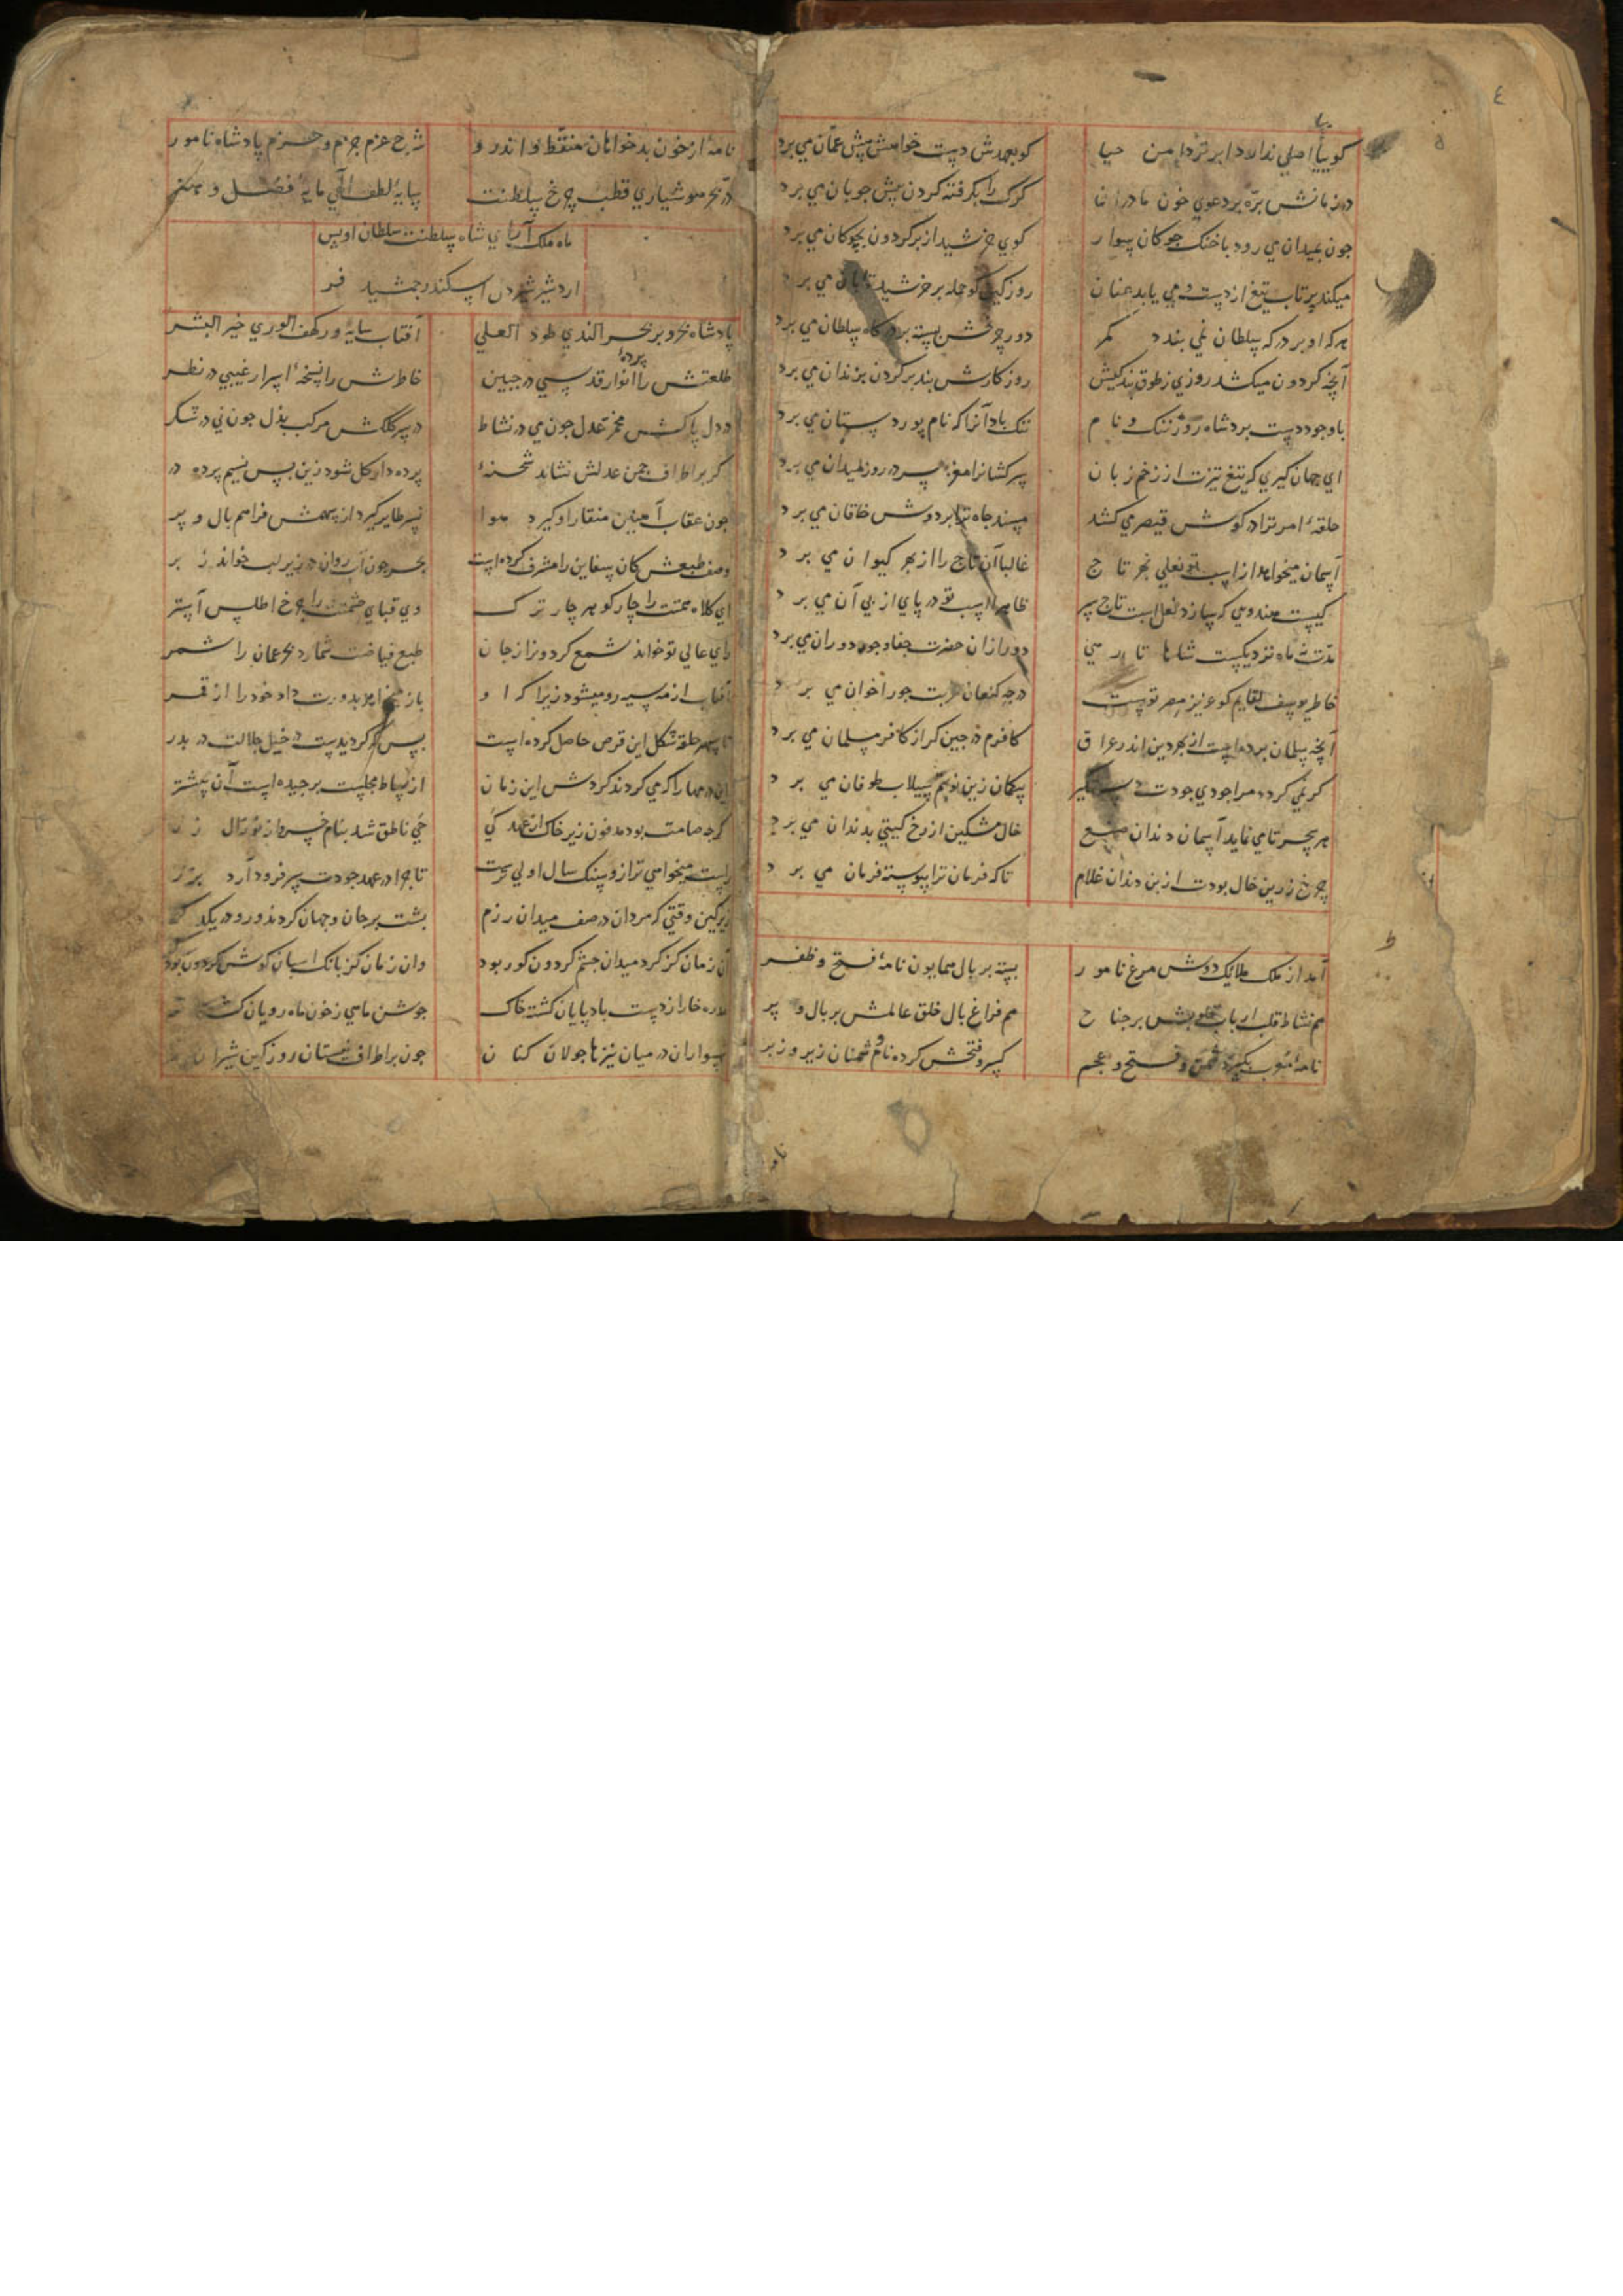 ٤
گوییا اصلی ندارد ابر تر دامن حیا کو بعهدش دست خواهش پیش عمان می برد
در زمانش بره بر دعوی خون مادران کرک را بکرفته کردن پیش جوبان می برد
جون بمیدان می رود با خنک جوکان سوار کوی خرشید از بر کردون بجوکان می برد
میکند پرتاب تیغ از دست و می یابد عنان روز کین کو حمله بر خرشید تابان می برد
هر که او بر در که سلطان نمی بندد کمر دور جرخش بسته بر درکاه سلطان می برد
آنچه کردون میکشد روزی ز طوق بندکیش روزکارش بند بر کردن بزندان می برد
با وجود دست برد شاه روز ننک و نام ننک باد آنرا که نام پور دستان می برد
ای جهان کیری که تیغ تیزت از زخم زبان سر کشانرا مغز سر در روز میدان می برد
حلقهٔ امر ترا در کوش قیصر می کشد مسند جاه ترا بر دوش خاقان می برد
آسمان میخواهد از اسب تو نعلی بهر تاج غالبا آن تاج را از بهر کیوان می برد
کیست هندوی که سازد نعل اسبت تاج سر ظاهرا اسب تو در پای از پی آن می برد
مدت نه ماه نزدیکست شاها تا رهی دور ازان حضرت جفا و جور دوران می برد
خاطر یوسف لقایم کو عزیز مصر تست در چه کنعان غربت جور اخوان می برد
آنچه سلمان برده است از بهر دین اندر عراق کافرم در جین کر از کافر مسلمان می برد
کر نمی کردد مرا جودی جودت دستکیر پیکان زین نوبتم سیلاب طوفان می برد
هر سحر تا می نماید آسمان دندان صبح خال مشکین از رخ کیتی بدندان می برد
جرخ زرین خال بودت از بن دندان غلام تا که فرمان ترا پیوسته فرمان می برد
آمد از ملک ملایک دوش مرغ نامور بسته بر بال همایون نامهٔ فتح و ظفر
هم نشاط قلب ارباب قلوبش بر جناح هم فراغ بال خلق عالمش بر بال و پر
نامهٔ و فتح و عجم کسر و فتحش کرده نام دشمنان زیر و زبر
نامهٔ از خون بدخواهان منقط و اندرو شرح عزم جزم و حزم پادشاه نامور
در بحر هوشیاری قطب جرخ سلطنت سایهٔ لطف الهی مایهٔ فضل و هنر
ماه ملک آرای شاه سلطنت سلطان اویس
اردشیر شیردل اسکندر جمشید فر
پادشاه بحر و بر بحر الندی طود العلی آفتاب سایه ور کهف الوری خیر البشر
طلعتش را پردهٔ انوار قدسی در جبین خاطرش را نسخهٔ اسرار غیبی در نظر
در دل پاکش مخمر عدل جون می در نشاط در سر کلکش مرکب بذل جون نی در شکر
کر بر اطراف جمن عدلش نشاند شحنهٔ پرده دار کل شود زین پس نسیم پرده در
جون عقاب آهنین منقار او کیرد هوا نسر طایر کیرد از سهمش فراهم بال و پر
وصف طبعش کان سفاین را مشرف کرده است بحر جون آب روان در زیر لب خواند ز بر
ای کلاه همتت را جار کوهر جار ترک وی قبای حشمتت را جرخ اطلس آستر
رای عالی تو خواند شمع کردونرا ز جان طبع فیاضت شمارد بحر عمان را شمر
آفتاب از مه سیه رو میشود زیرا که او باز میخواهد بدورت داد خود را از قمر
تا سپهر حلقه شکل این قرص حاصل کرده است بس که کردیدست در خیل جلالت در بدر
از بساط مجلست برجیده است آن پیشتر این درمها را که می کردند کردش این زمان
کرجه صامت بود مدفون زیر خاک از عهد کی حی ناطق شد بنام خسرو
راست میخواهی ترازو سنک سال اولی ترست تا جرا در عهد جودت سر فرود آرد بزر
روز کین وقتی که مردان در صف میدان رزم پشت بر جان و جهان کردند و رو در یکدکر
آن زمان کز کرد میدان جشم کردون کور بود وان زمان کز بانک اسبان کوش کردون بود کر
دره خارا ز دست باد پایان کشته خاک جوشن ماهی ز خون ماه رویان کشته تر
سواران در میان نیزها جولان کنان جون بر اطراف نیستان روز کین شیران